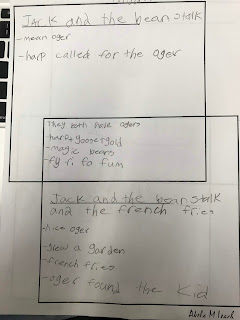 Jack and the bean stalk
-mean oger
-harp called for the oger
They both have ogers
-magic beans
fy fi fo fum
Jack and the bean stalk
and the french fries
-nice oger
-grew a garden
-french fries
-oger found the kid